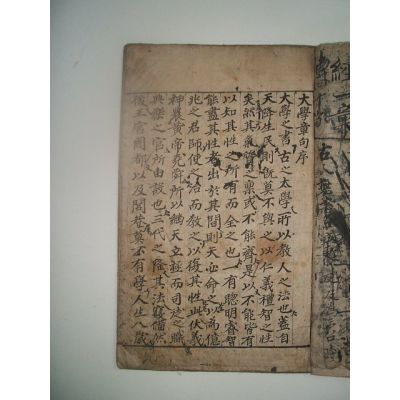 大學章句序
大學之書古之太學所以教人之法也盖自
天降生民則旣莫不與之以仁義禮智之性
矣然其氣質之稟或不能齊是以不能皆有
以知其性之所有而全之也一有聰明睿智
能盡其性者出於其間則天必命之以為億
兆之君師使之治而教之以復其性此伏羲
神農黃帝堯舜所以継天立極而司徒之職
典樂之官所由設也三代之隆其法寖備然
後王宮國都以及閭巷莫不有學人生八歲